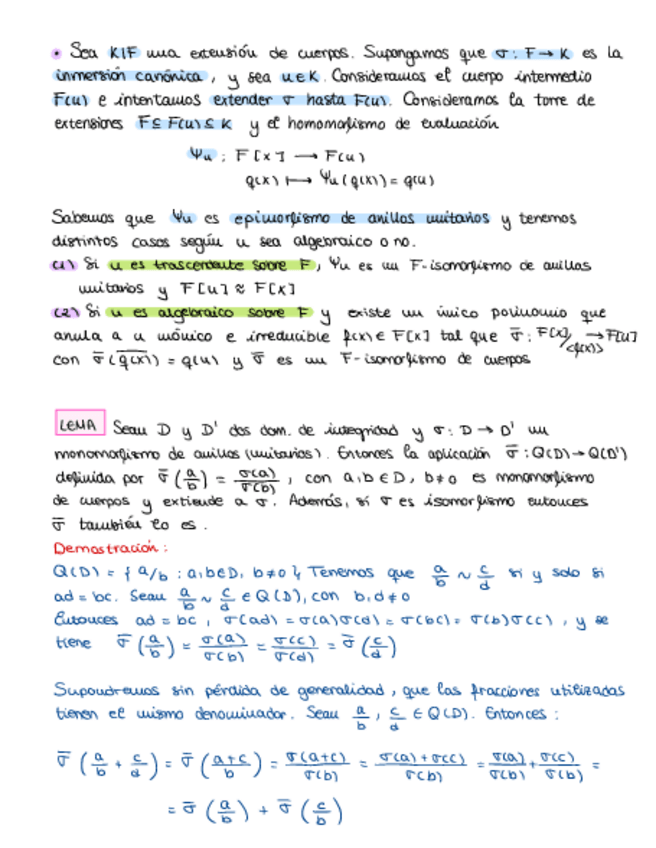 • Sea K|F una extensión de cuerpos. Supongamos que σ: F → K es la
inmersión canónica, y sea u ∈ K. Consideramos el cuerpo intermedio
F(u) e intentamos extender σ hasta F(u). Consideramos la torre de
extensiones F ⊆ F(u) ⊆ K y el homomorfismo de evaluación
Ψu : F[x] → F(u)
q(x) ↦ Ψu(q(x)) = q(u)
Sabemos que Ψu es epimorfismo de anillos unitarios y tenemos
distintos casos según u sea algebraico o no.
(1) Si u es trascendente sobre F, Ψu es un F-isomorfismo de anillos
unitarios y F[u] ≈ F[x]
(2) Si u es algebraico sobre F y existe un único polinomio que
anula a u mónico e irreducible f(x) ∈ F[x] tal que σ̅ : F[x]/<f(x)> → F[u]
con σ̅(q̅(̅x̅)̅) = q(u) y σ̅ es un F-isomorfismo de cuerpos
LEMA Sean D y D' dos dom. de integridad y σ: D → D' un
monomorfismo de anillos (unitarios). Entonces la aplicación σ̅ : Q(D) → Q(D')
definida por σ̅(a/b) = σ(a)/σ(b), con a,b ∈ D, b≠0 es monomorfismo
de cuerpos y extiende a σ. Además, si σ es isomorfismo entonces
σ̅ también lo es.
Demostración:
Q(D) = { a/b : a,b∈D, b≠0 }, Tenemos que a/b ~ c/d si y solo si
ad = bc. Sean a/b ~ c/d ∈ Q(D), con b,d ≠ 0
Entonces ad = bc, σ(ad) = σ(a)σ(d) = σ(bc) = σ(b)σ(c), y se
tiene σ̅(a/b) = σ(a)/σ(b) = σ(c)/σ(d) = σ̅(c/d)
Supondremos sin pérdida de generalidad, que las fracciones utilizadas
tienen el mismo denominador. Sean a/b, c/d ∈ Q(D). Entonces:
σ̅(a/b + c/d) = σ̅((a+c)/b) = σ(a+c)/σ(b) = (σ(a) + σ(c))/σ(b) = σ(a)/σ(b) + σ(c)/σ(b) =
= σ̅(a/b) + σ̅(c/b)